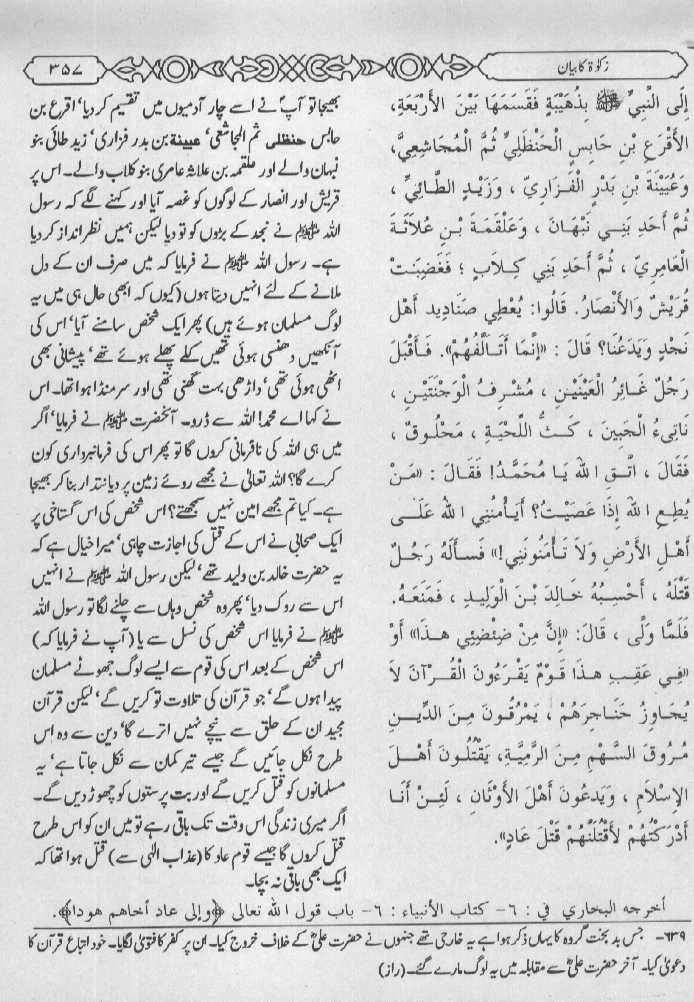 زکوٰۃ کا بیان
۳۵۷
إِلَى النَّبِيِّ ﷺ بِذُهَيْبَةٍ فَقَسَمَهَا بَيْنَ الأَرْبَعَةِ،
الأَقْرَعِ بْنِ حَابِسٍ الْحَنْظَلِيِّ ثُمَّ الْمُجَاشِعِيِّ،
وَعُيَيْنَةَ بْنِ بَدْرٍ الْفَزَارِيِّ ، وَزَيْدٍ الطَّائِيِّ ،
ثُمَّ أَحَدِ بَنِي نَبْهَانَ ، وَعَلْقَمَةَ بْنِ عُلَاثَةَ
الْعَامِرِيِّ ، ثُمَّ أَحَدِ بَنِي كِلَابٍ ؛ فَغَضِبَتْ
قُرَيْشٌ وَالأَنْصَارُ. قَالُوا: يُعْطِي صَنَادِيدَ أَهْلِ
نَجْدٍ وَيَدَعُنَا؟ قَالَ : «إِنَّمَا أَتَأَلَّفُهُمْ». فَأَقْبَلَ
رَجُلٌ غَائِرُ الْعَيْنَيْنِ ، مُشْرِفُ الْوَجْنَتَيْنِ ،
نَاتِىءُ الْجَبِينِ ، كَثُّ اللِّحْيَةِ ، مَحْلُوقٌ ،
فَقَالَ ، اتَّقِ اللهَ يَا مُحَمَّدُ! فَقَالَ : «مَنْ
يُطِعِ اللهَ إِذَا عَصَيْتُ؟ أَيَأْمَنُنِي اللهُ عَلَى
أَهْلِ الأَرْضِ وَلاَ تَأْمَنُونَنِي!» فَسَأَلَهُ رَجُلٌ
قَتْلَهُ ، أَحْسِبُهُ خَالِدَ بْنَ الْوَلِيدِ ، فَمَنَعَهُ.
فَلَمَّا وَلَّى ، قَالَ: «إِنَّ مِنْ ضِئْضِئِي هذَا» أَوْ
«فِي عَقِبِ هذَا قَوْمٌ يَقْرَءُونَ الْقُرْآنَ لاَ
يُجَاوِزُ حَنَاجِرَهُمْ ، يَمْرُقُونَ مِنَ الدِّينِ
مُرُوقَ السَّهْمِ مِنَ الرَّمِيَّةِ، يَقْتُلُونَ أَهْلَ
الإِسْلاَمِ ، وَيَدَعُونَ أَهْلَ الأَوْثَانِ ، لَئِنْ أَنَا
أَدْرَكْتُهُمْ لأَقْتُلَنَّهُمْ قَتْلَ عَادٍ».
بھیجا تو آپؐ نے اسے چار آدمیوں میں تقسیم کر دیا‘ اقرع بن
حابس حنظلی ثم المجاشعی‘ عیینہ بن بدر فزاری‘ زید طائی بنو
نبہان والے اور علقمہ بن علاثہ عامری بنو کلاب والے۔ اس پر
قریش اور انصار کے لوگوں کو غصہ آیا اور کہنے لگے کہ رسول
اللہ ﷺ نے نجد کے بڑوں کو تو دیا لیکن ہمیں نظر انداز کر دیا
ہے۔ رسول اللہ ﷺ نے فرمایا کہ میں صرف ان کے دل
ملانے کے لئے انہیں دیتا ہوں (کیوں کہ ابھی حال ہی میں یہ
لوگ مسلمان ہوئے ہیں) پھر ایک شخص سامنے آیا‘ اس کی
آنکھیں دھنسی ہوئی تھیں کلے پھولے ہوئے تھے‘ پیشانی بھی
اٹھی ہوئی تھی‘ داڑھی بہت گھنی تھی اور سر منڈا ہوا تھا۔ اس
نے کہا اے محمد! اللہ سے ڈرو۔ آنحضرت ﷺ نے فرمایا‘ اگر
میں ہی اللہ کی نافرمانی کروں گا تو پھر اس کی فرمانبرداری کون
کرے گا؟ اللہ تعالیٰ نے مجھے روئے زمین پر دیانتدار بنا کر بھیجا
ہے۔ کیا تم مجھے امین نہیں سمجھتے؟ اس شخص کی اس گستاخی پر
ایک صحابی نے اس کے قتل کی اجازت چاہی‘ میرا خیال ہے کہ
یہ حضرت خالد بن ولید تھے‘ لیکن رسول اللہ ﷺ نے انہیں
اس سے روک دیا‘ پھر وہ شخص وہاں سے چلنے لگا تو رسول اللہ
ﷺ نے فرمایا اس شخص کی نسل سے یا (آپ نے فرمایا کہ)
اس شخص کے بعد اس کی قوم سے ایسے لوگ جھوٹے مسلمان
پیدا ہوں گے‘ جو قرآن کی تلاوت تو کریں گے‘ لیکن قرآن
مجید ان کے حلق سے نیچے نہیں اترے گا‘ دین سے وہ اس
طرح نکل جائیں گے جیسے تیر کمان سے نکل جاتا ہے‘ یہ
مسلمانوں کو قتل کریں گے اور بت پرستوں کو چھوڑ دیں گے۔
اگر میری زندگی اس وقت تک باقی رہے تو میں ان کو اس طرح
قتل کروں گا جیسے قوم عاد کا (عذاب الٰہی سے) قتل ہوا تھا کہ
ایک بھی باقی نہ بچا۔
أخرجه البخاري في : ٦- كتاب الأنبياء : ٦- باب قول الله تعالى ﴿وإلى عاد أخاهم هودا﴾.
۶۳۹- جس بدبخت گروہ کا یہاں ذکر ہوا ہے یہ خارجی تھے جنہوں نے حضرت علیؓ کے خلاف خروج کیا۔ ان پر کفر کا فتویٰ لگایا۔ خود اتباع قرآن کا
دعویٰ کیا۔ آخر حضرت علیؓ سے مقابلہ میں یہ لوگ مارے گئے۔ (راز)